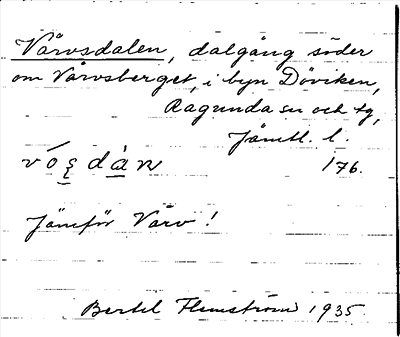 Vårvsdalen, dalgång söder
om Vårvsberget, i byn Döviken,
Ragunda sn och tg,
Jämtl. l.
176.
Jämför Varv!
Bertil Flemström 1935.